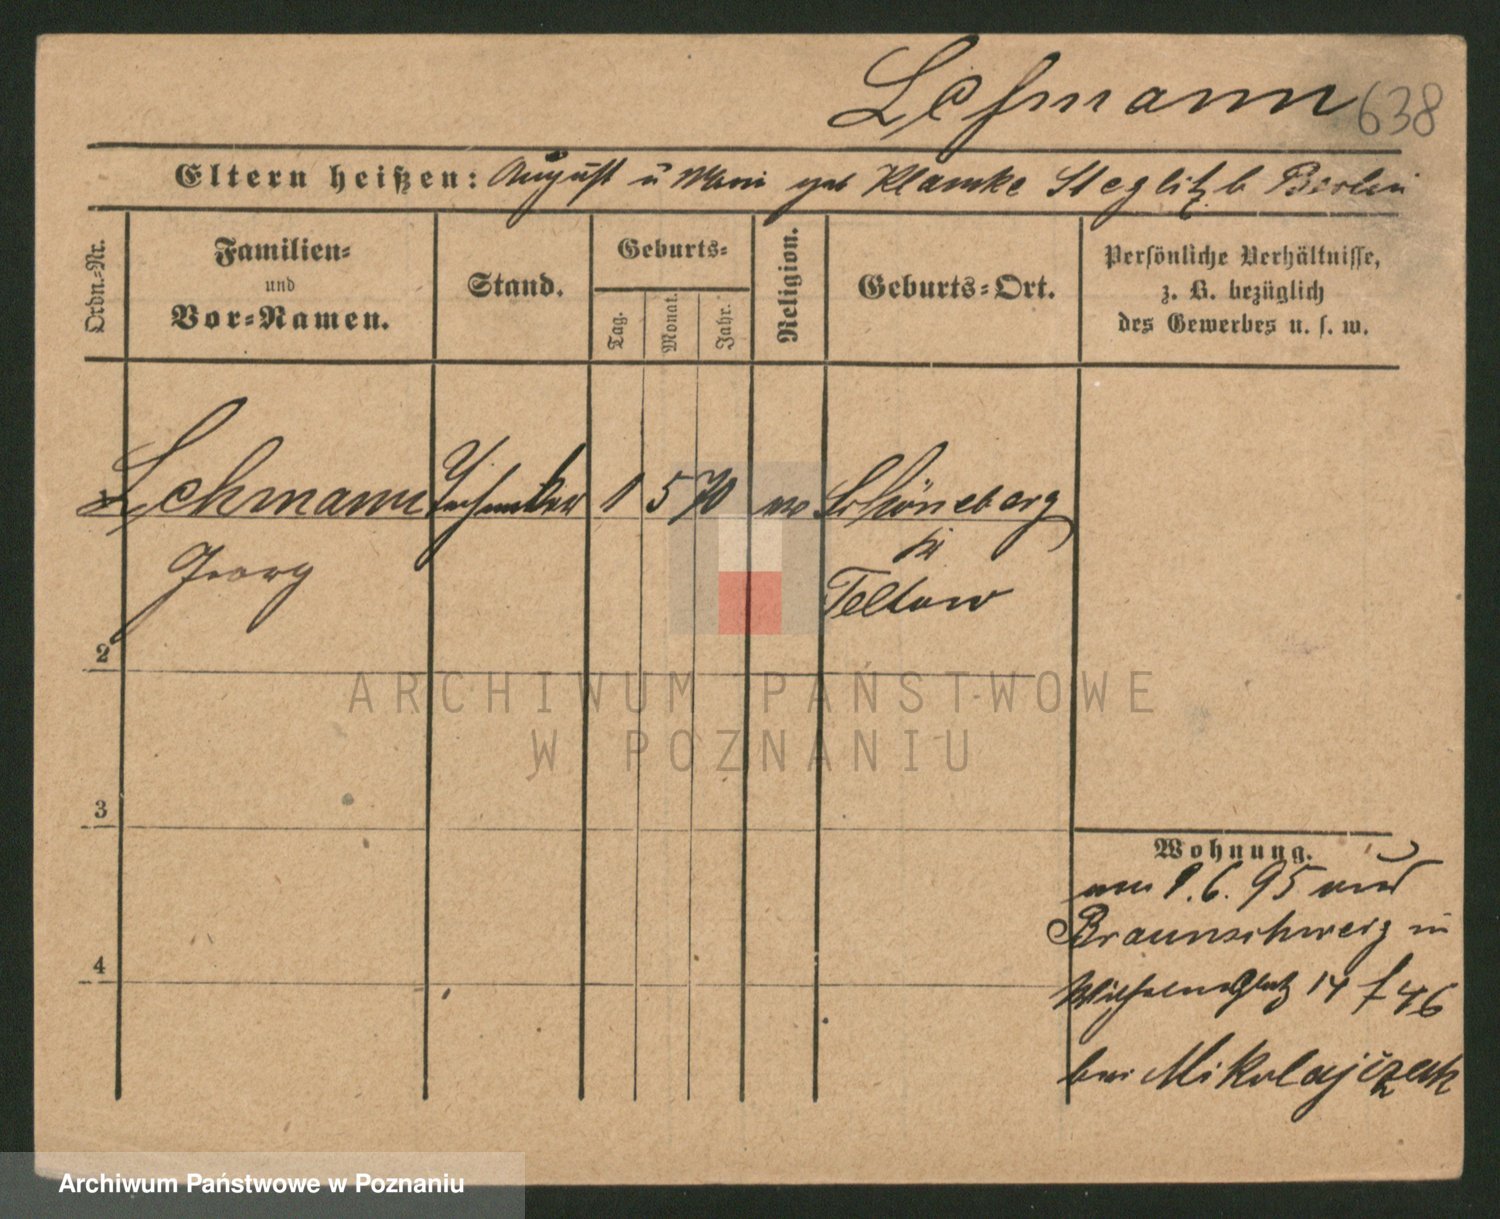 Lehmann 638
Eltern heißen: August u Marie geb Klamke Steglitz b Berlin
Ordn.-Nr.
Familien-
und
Vor-Namen.
Stand.
Geburts-
Tag.
Monat.
Jahr.
Religion.
Geburts-Ort.
Persönliche Verhältnisse,
z. B. bezüglich
des Gewerbes u. s. w.
Lehmann 1 5 70 Schöneberg
Georg
Teltow
2
3
4
Wohnung.
am 1.6.95 aus
Braunschweig in
Wilhelmsplatz 14
bei Mikolajczak
ARCHIWUM PAŃSTWOWE
W POZNANIU
Archiwum Państwowe w Poznaniu